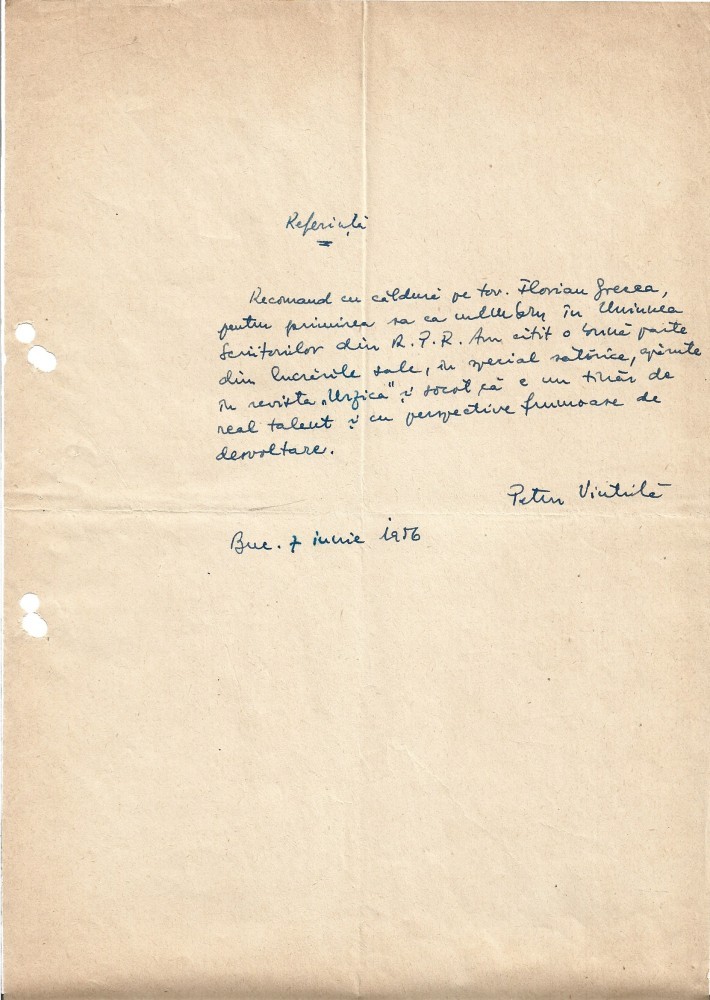 Referință
Recomand cu căldură pe tov. Florian Grecea,
pentru primirea sa ca membru în Uniunea
Scriitorilor din R.P.R. Am citit o bună parte
din lucrările sale, în special satirice, apărute
în revista „Urzica" și socot că e un tînăr de
real talent și cu perspective frumoase de
desvoltare.
Petru Vintilă
Buc. 7 iunie 1956